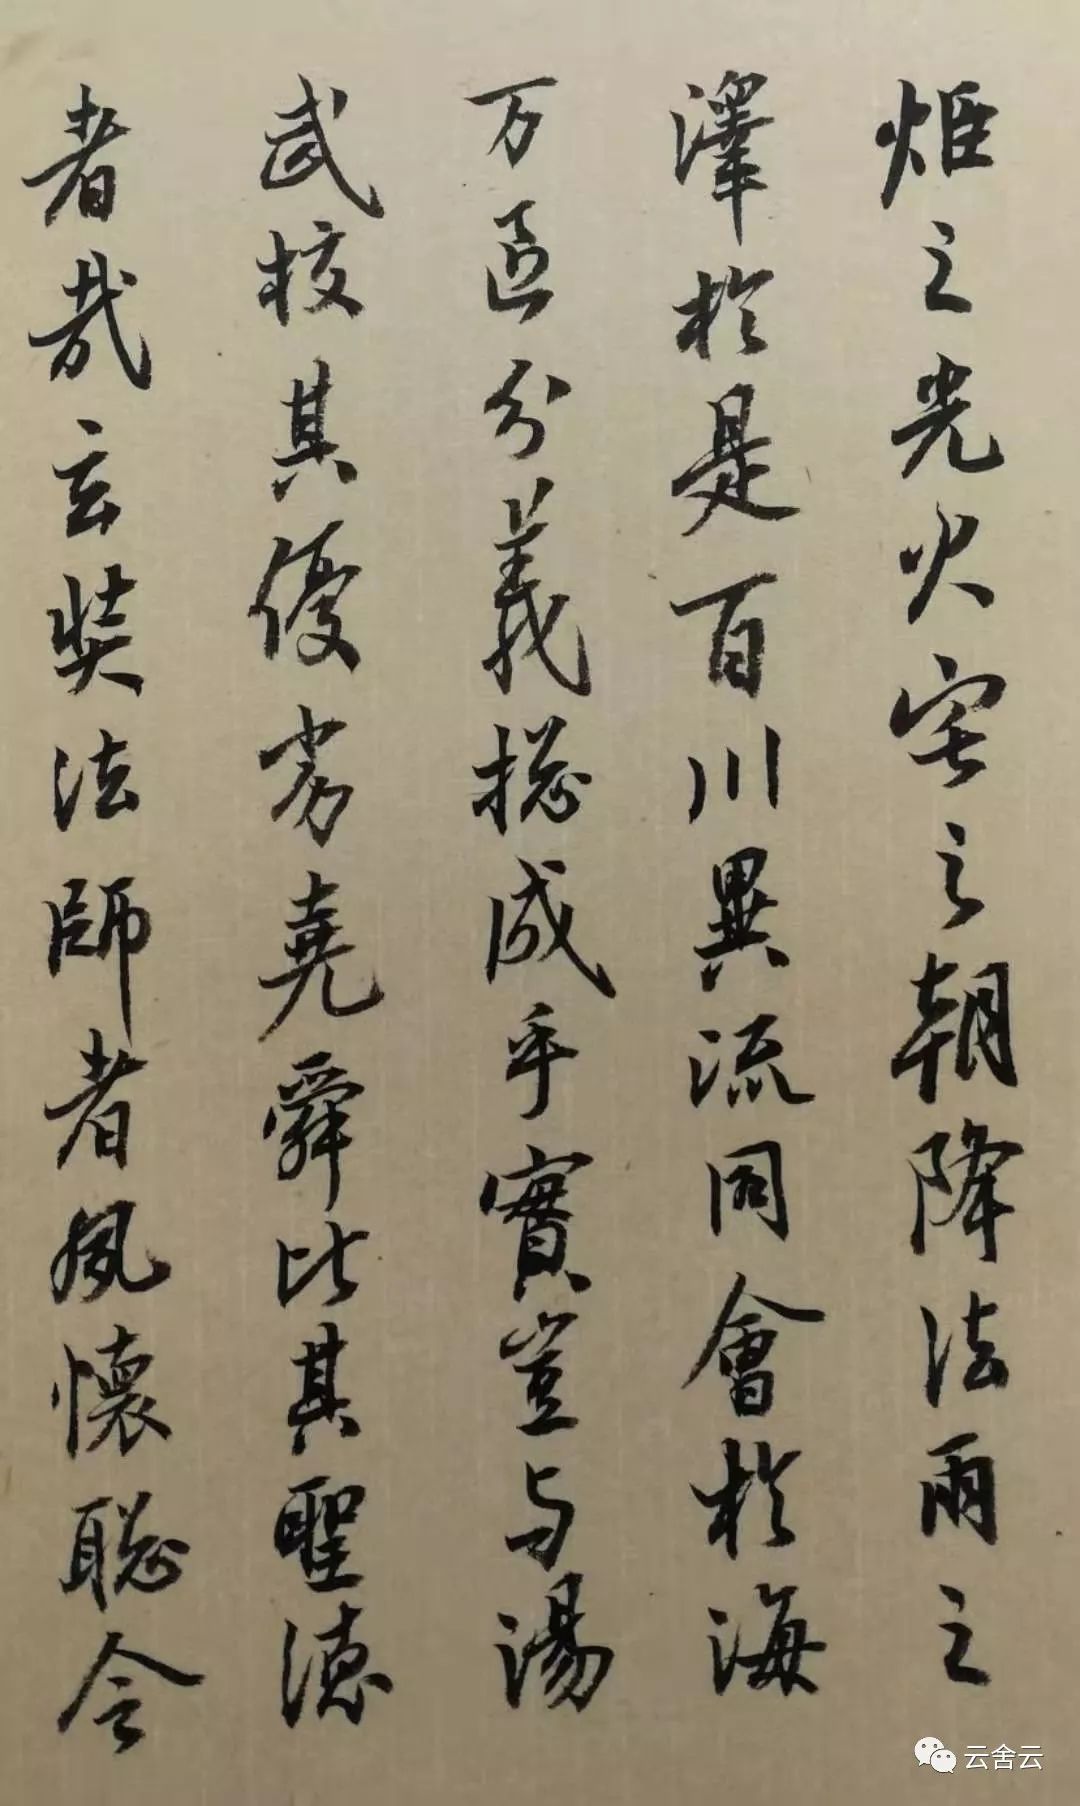 炬之光火宅之朝降法雨之
澤於是百川異流同會於海
万區分義揔成乎實豈与湯
武校其優劣堯舜比其聖德
者哉玄奘法師者夙懷聡令
云舍云